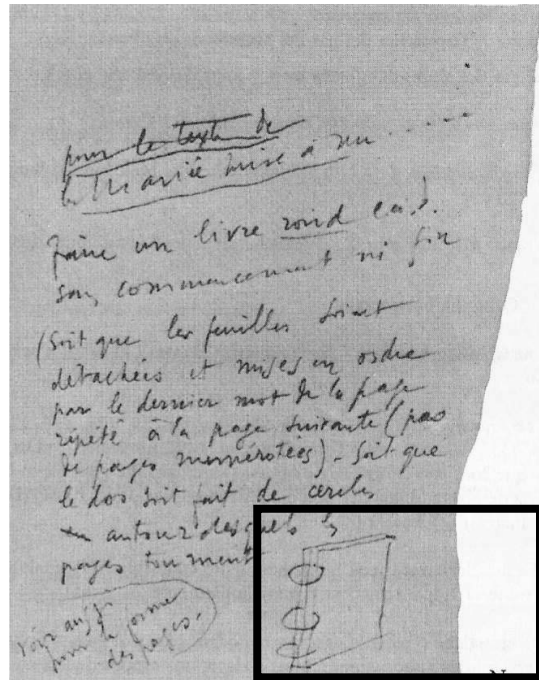 pour le texte de
la Mariée mise à nu . . . . .
Faire un livre rond c.à.d.
sans commencement ni fin
(Soit que les feuilles soient
détachées et mises en ordre
par le dernier mot de la page
répété à la page suivante (pas
de pages numérotées) - Soit que
le dos soit fait de cercles
autour desquels les
pages tournent
Voir aussi
pour la forme
des pages.